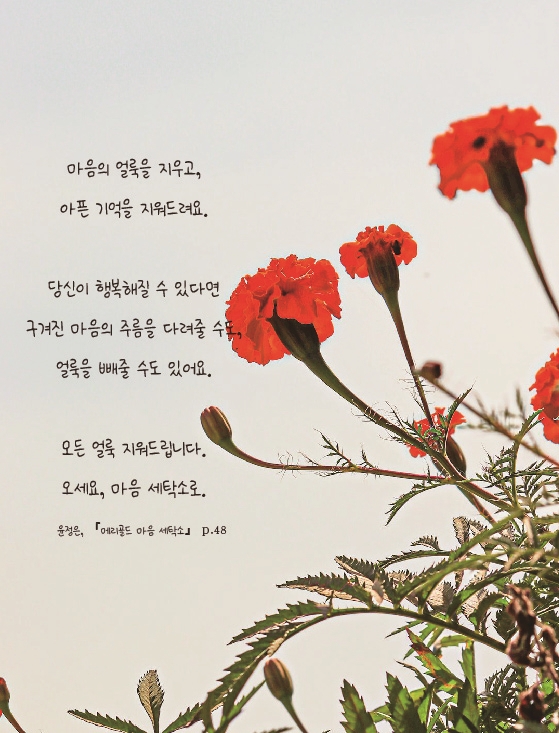 마음의 얼룩을 지우고,
아픈 기억을 지워드려요.
당신이 행복해질 수 있다면
구겨진 마음의 주름을 다려줄 수도,
얼룩을 빼줄 수도 있어요.
모든 얼룩 지워드립니다.
오세요, 마음 세탁소로.
윤정은, 『메리골드 마음 세탁소』 p.48